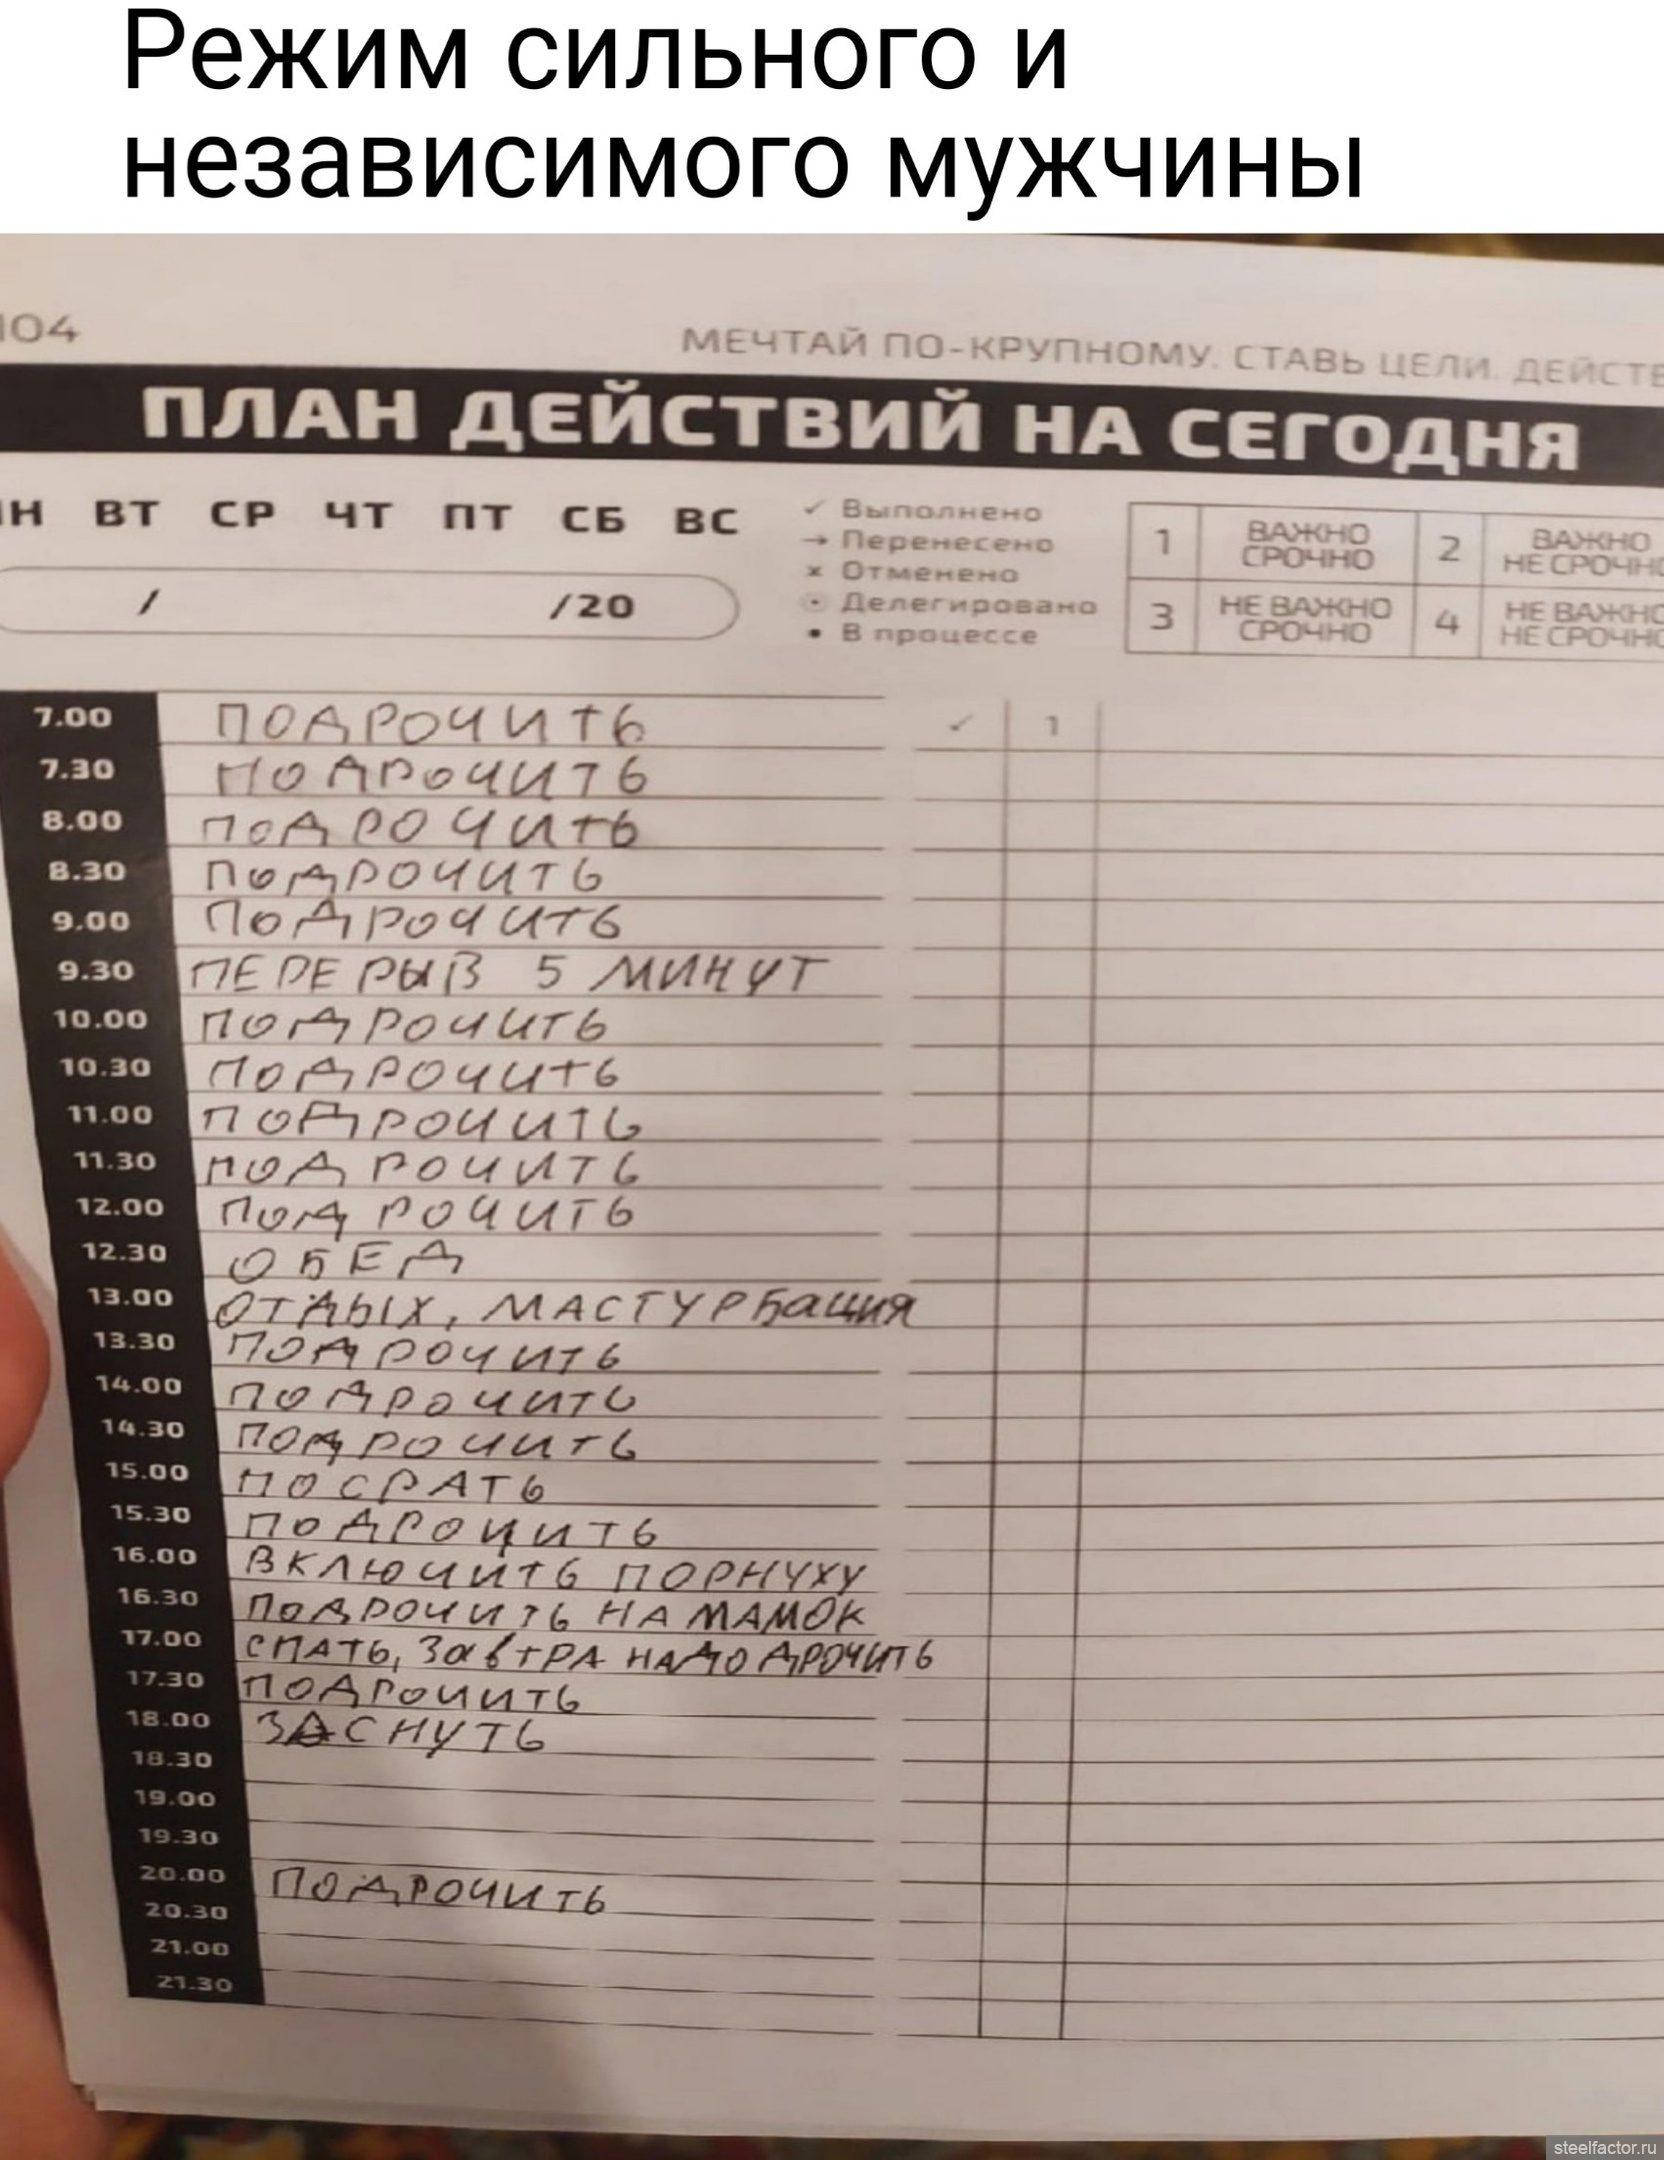 Режим сильного и
независимого мужчины
104
МЕЧТАЙ ПО-КРУПНОМУ. СТАВЬ ЦЕЛИ. ДЕЙСТВ
ПЛАН ДЕЙСТВИЙ НА СЕГОДНЯ
ПН ВТ СР ЧТ ПТ СБ ВС
/ /20
✓ Выполнено
→ Перенесено
× Отменено
Делегировано
• В процессе
1 ВАЖНО СРОЧНО 2 ВАЖНО НЕ СРОЧНО
3 НЕ ВАЖНО СРОЧНО 4 НЕ ВАЖНО НЕ СРОЧНО
7.00 ПОДРОЧИТЬ ✓ 1
7.30 ПОДРОЧИТЬ
8.00 ПОДРОЧИТЬ
8.30 ПОДРОЧИТЬ
9.00 ПОДРОЧИТЬ
9.30 ПЕРЕРЫВ 5 МИНУТ
10.00 ПОДРОЧИТЬ
10.30 ПОДРОЧИТЬ
11.00 ПОДРОЧИТЬ
11.30 ПОДРОЧИТЬ
12.00 ПОДРОЧИТЬ
12.30 ОБЕД
13.00 ОТДЫХ, МАСТУРБАЦИЯ
13.30 ПОДРОЧИТЬ
14.00 ПОДРОЧИТЬ
14.30 ПОДРОЧИТЬ
15.00 ПОСРАТЬ
15.30 ПОДРОЧИТЬ
16.00 ВКЛЮЧИТЬ ПОРНУХУ
16.30 ПОДРОЧИТЬ НА МАМОК
17.00 СПАТЬ, ЗАВТРА НАДО ДРОЧИТЬ
17.30 ПОДРОЧИТЬ
18.00 ЗАСНУТЬ
18.30
19.00
19.30
20.00 ПОДРОЧИТЬ
20.30
21.00
21.30
steelfactor.ru